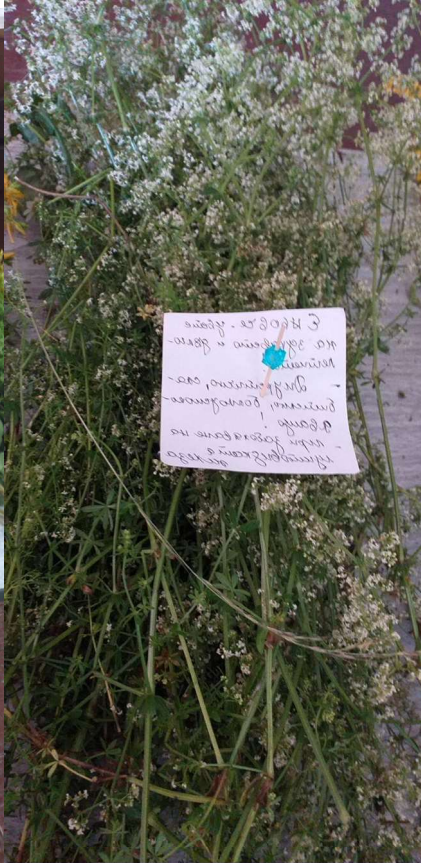 Еньовче - цвете
на здравето и дълго-
летието!
Диуретично, сла-
бително, болкоуспок-
яващо!
при заболяване на
щитовидната
жлеза